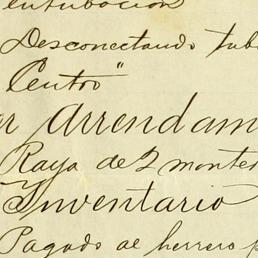 entubación
Desconectando tub
Centro"
ar Arrendam
Raya de 2 montes
Inventario
Pagado al herrero p